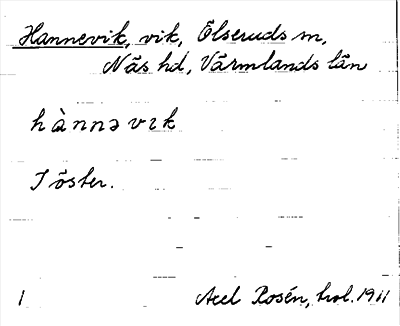 Hannevik, vik, Ölseruds sn,
Näs hd, Värmlands län
hànnəvɩk
I öster.
1 Axel Rosén, kol. 1911